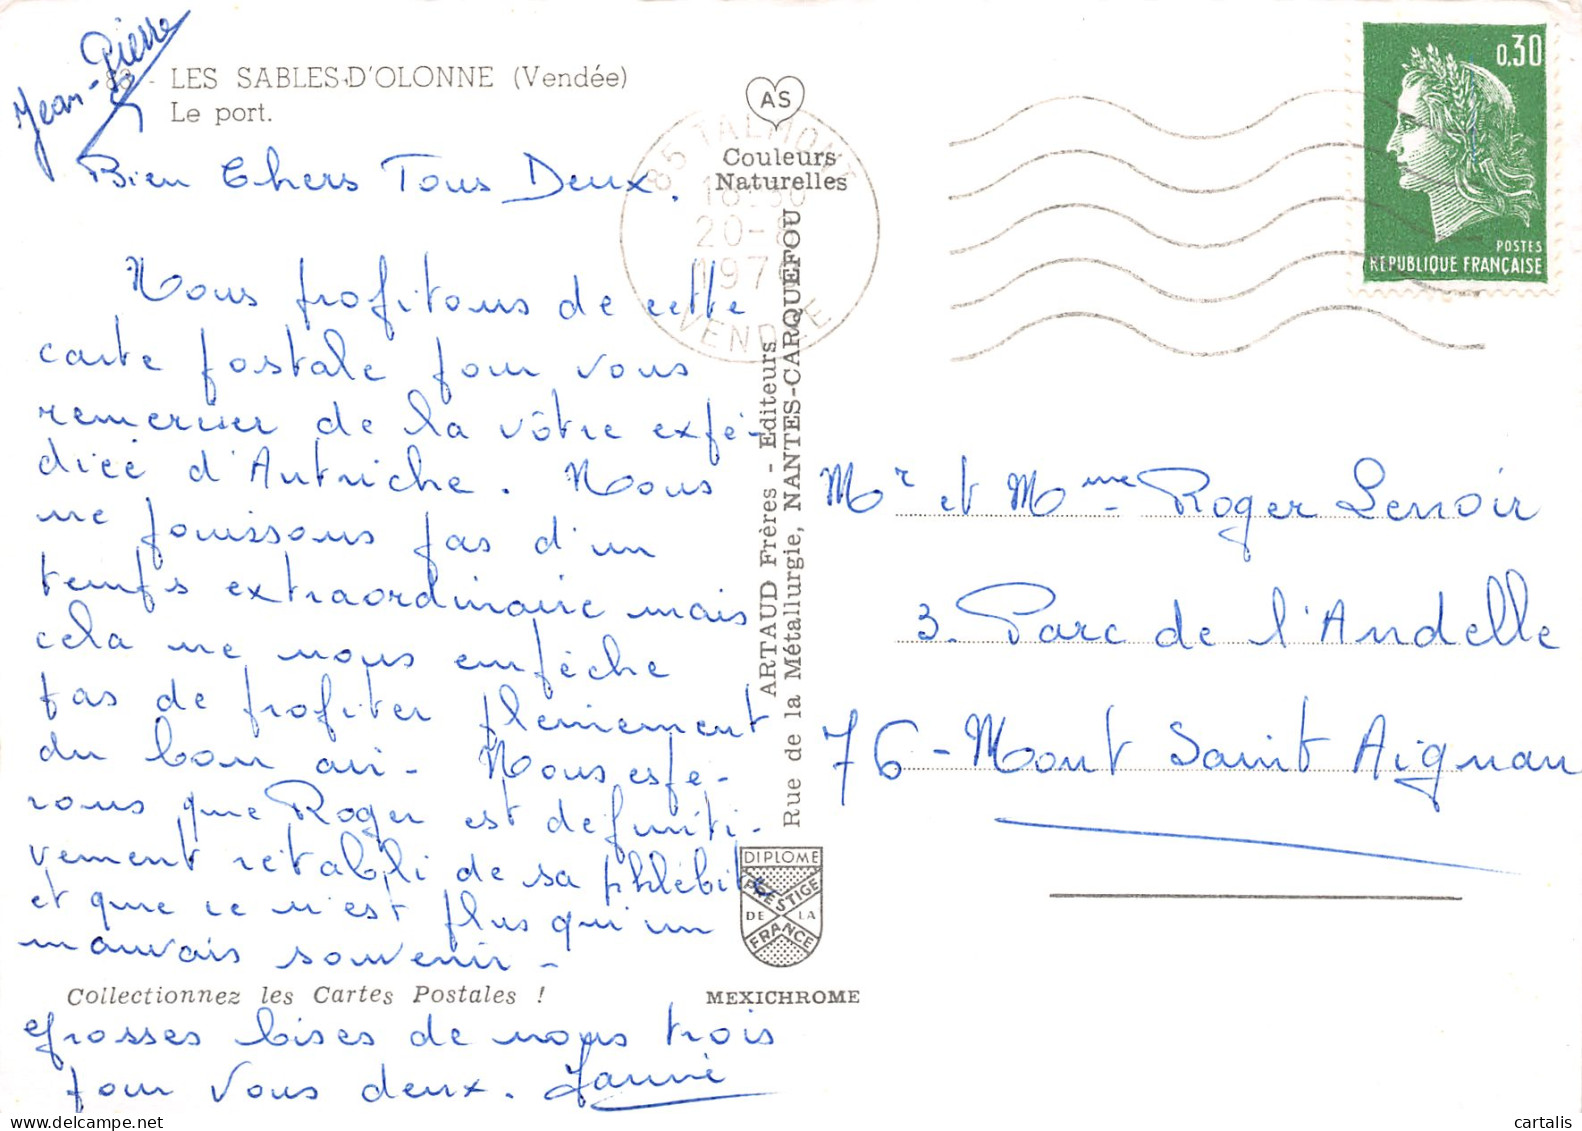 Jean-Pierre
88 - LES SABLES-D'OLONNE (Vendée)
Le port.
AS
Couleurs
Naturelles
85 TALMONT
VENDEE
20-8
0,30
POSTES
RÉPUBLIQUE FRANÇAISE
Bien Chers Tous Deux.
Nous profitons de cette
carte postale pour vous
remercier de la vôtre expé-
diée d'Autriche. Nous
ne jouissons pas d'un
temps extraordinaire mais
cela ne nous empêche
pas de profiter pleinement
du bon air - Nous espé-
rons que Roger est définiti-
vement rétabli de sa phlébite
et que ce n'est plus qu'un
mauvais souvenir -
Collectionnez les Cartes Postales !
Grosses bises de nous trois
pour vous deux.
ARTAUD Frères - Editeurs
Rue de la Métallurgie, NANTES-CARQUEFOU
DIPLOME
PRESTIGE
DE LA
FRANCE
MEXICHROME
Mr et Mme Roger Lenoir
3. Parc de l'Andelle
76 - Mont Saint Aignan
cartalis